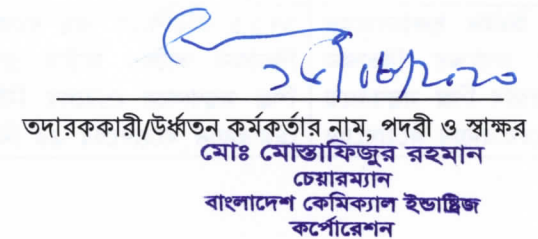 তদারককারী/উর্ধ্বতন কর্মকর্তার নাম, পদবী ও স্বাক্ষর
মোঃ মোস্তাফিজুর রহমান
চেয়ারম্যান
বাংলাদেশ কেমিক্যাল ইন্ডাষ্ট্রিজ
কর্পোরেশন